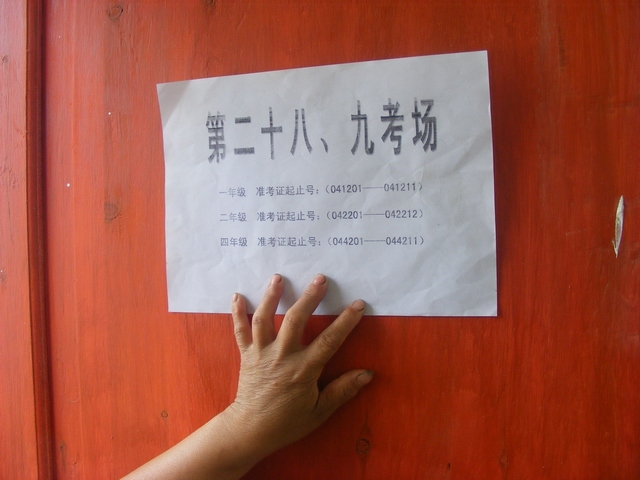 第二十八、九考场
一年级 准考证起止号：（041201——041211）
二年级 准考证起止号：（042201——042212）
四年级 准考证起止号：（044201——044211）